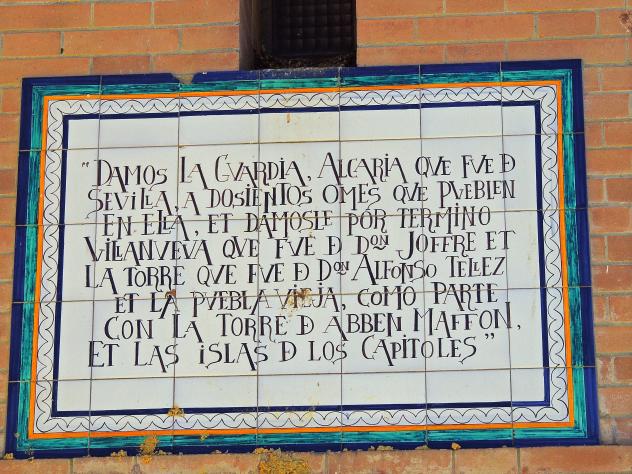 "DAMOS LA GVARDIA, ALCARIA QVE FVE Đ
SEVILLA, A DOSIENTOS OMES QVE PVEBLEN
EN ELLA, ET DAMOSLE POR TERMINO
VILLANVEVA QVE FVE Đ DON JOFFRE ET
LA TORRE QVE FVE Đ DON ALFONSO TELLEZ
ET LA PVEBLA VIEJA, COMO PARTE
CON LA TORRE Đ ABBEN MAFFON,
ET LAS iSLAS Đ LOS CAPITOLES"